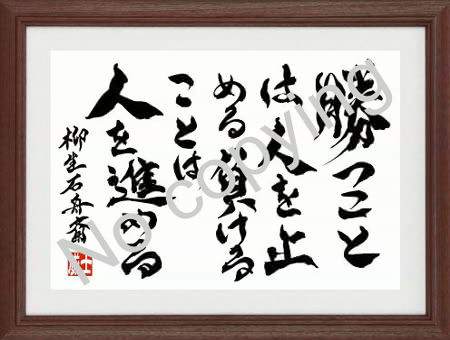 勝つこと
は人を止
める負ける
ことは
人を進める
柳生石舟斎
No copying